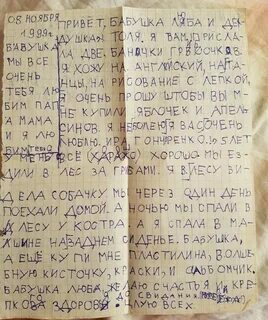 08 НОЯБРЯ
1999г.
БАБУШКА
МЫ ВСЕ
ОЧЕНЬ
ТЕБЯ ЛЮ
БИМ ПАПА
МАМА
И Я
ПРИВЕТ, БАБУШКА ЛЮБА И ДЕ
ДУШКА ТОЛЯ. Я ВАМ ПРИСЛА
ЛА ДВЕ БАНОЧКИ ГРИБОЧКОВ.
Я ХОЖУ НА АНГЛИЙСКИЙ, НА ТА
НЦЫ, НА РИСОВАНИЕ С ЛЕПКОЙ,
Я ОЧЕНЬ ПРОШУ ШТОБЫ ВЫ М
НЕ КУПИЛИ ЯБЛОЧЕК И АПЕЛЬ
СИНОВ. Я НЕ БОЛЕЮ Я ВАС ОЧЕНЬ
ЛЮБЛЮ. ИРА ГОНЧУРЕНКО. 5 ЛЕТ
У МЕНЯ ВСЁ ХОРОШО МЫ ЕЗ
ДИЛИ В ЛЕС ЗА ГРБАМИ. Я В ЛЕСУ ВИ
ДЕЛА СОБАЧКУ МЫ ЧЕРЕЗ ОДИН ДЕНЬ
ПОЕХАЛИ ДОМОЙ. А НОЧЬЮ МЫ СПАЛИ В
ЛЕСУ У КОСТРА. А Я СПАЛА В МА
ШИНЕ НА ЗАДНЕМ СИДЕНЬЕ. БАБУШКА,
А ЕЩЁ КУПИ МНЕ ПЛАСТИЛИНА, ВОЛШЕ
БНУЮ КИСТОЧКУ, КРАСКИ, И АЛЬБОМЧИК.
БАБУШКА ЛЮБА ЖЕЛАЮ СЧАСТЬЯ И КРЕ
ПКОГО ЗДОРОВЬЯ. До Свидания ЦЕЛУЮ ВСЕХ